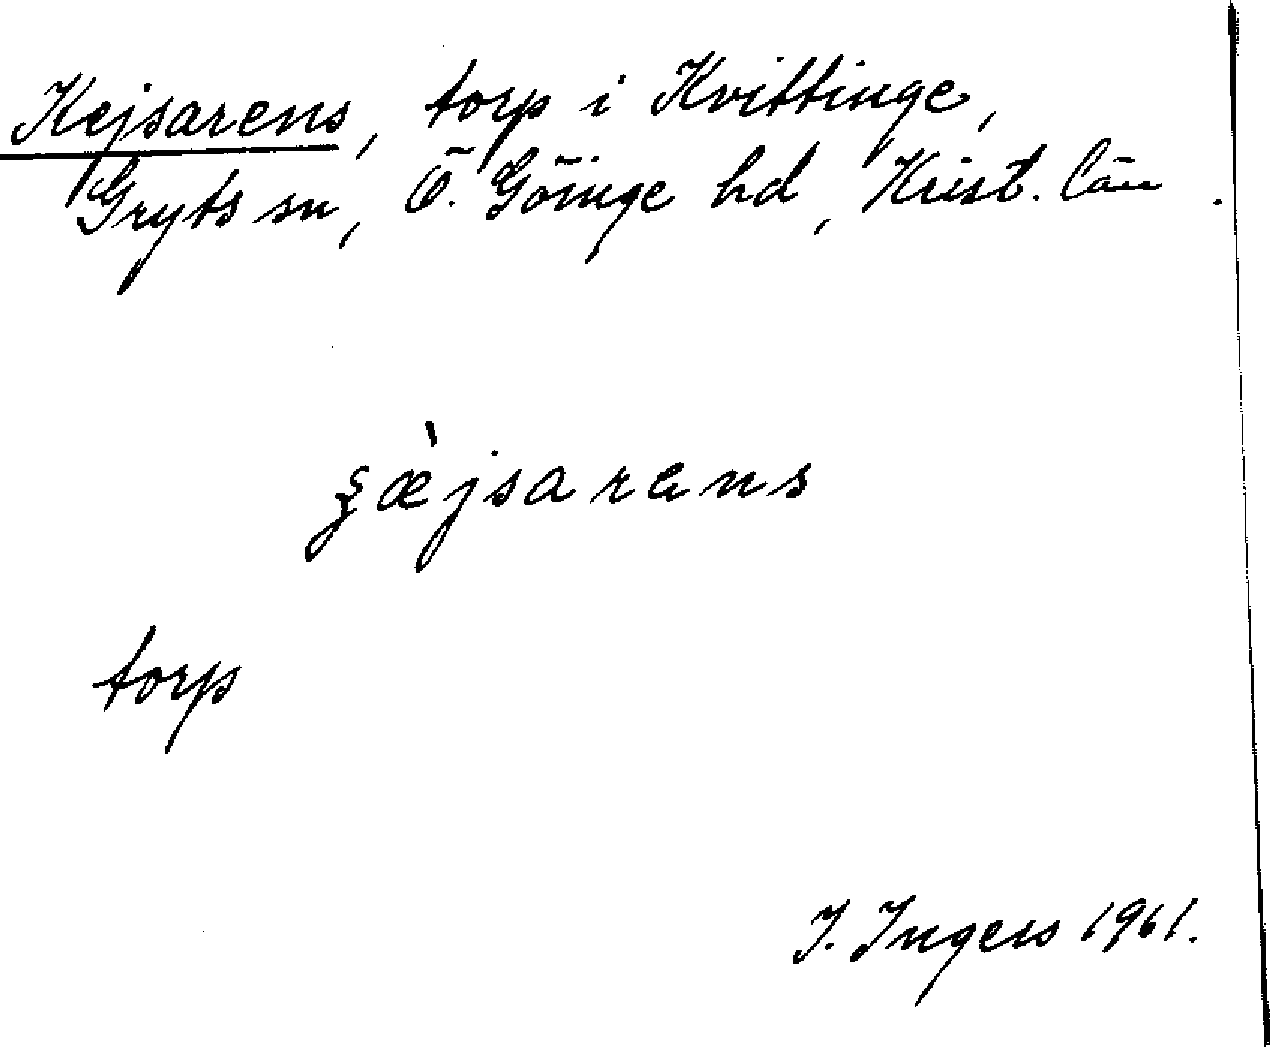 Kejsarens, torp i Kvittinge,
Gryts sn, Ö. Göinge hd, Krist. län.
ʂæ̀jsarens
torp
I. Ingers 1961.